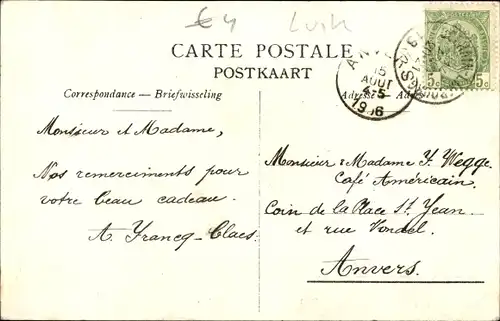 €4 Luik
CARTE POSTALE
POSTKAART
Correspondance — Briefwisseling
Adresse
15
AOUT
4-5
1906
5c 5c
Monsieur et Madame,
Nos remerciments pour
votre beau cadeau.
A. Francq-Claes.
Monsieur & Madame F. Wegge
Café Américain.
Coin de la Place St. Jean
et rue Vondel.
Anvers.